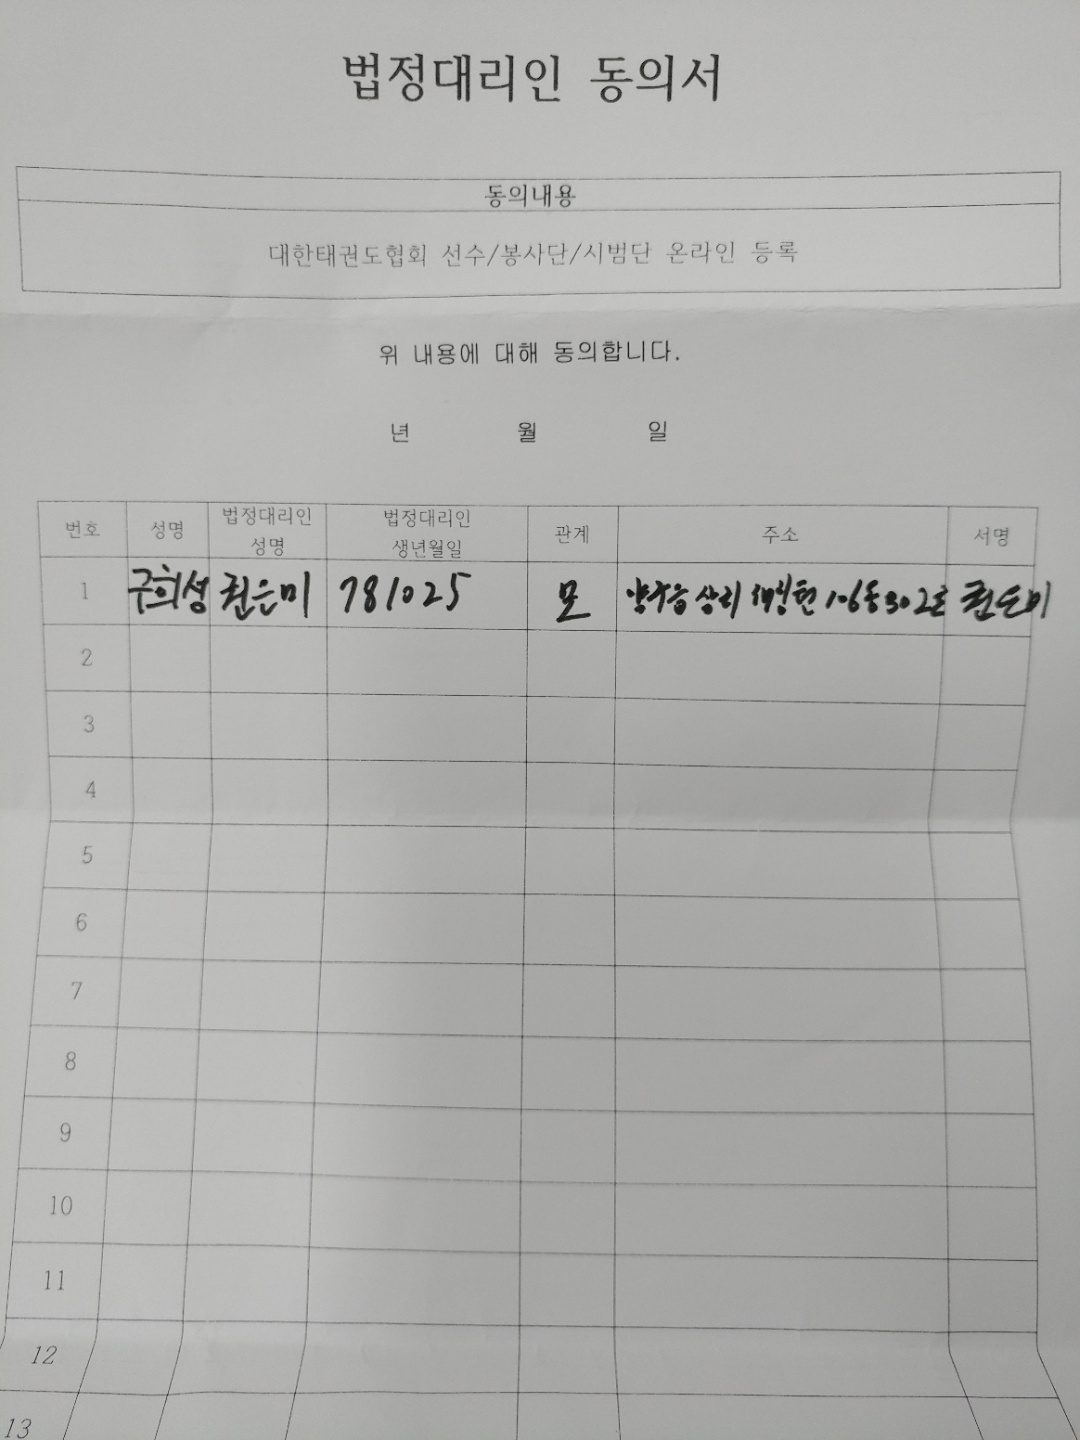 법정대리인 동의서
동의내용
대한태권도협회 선수/봉사단/시범단 온라인 등록
위 내용에 대해 동의합니다.
년 월 일
번호 성명 법정대리인 성명 법정대리인 생년월일 관계 주소 서명
1 구희성 권은미 781025 모 상리 106동302호 권은미
2
3
4
5
6
7
8
9
10
11
12
13